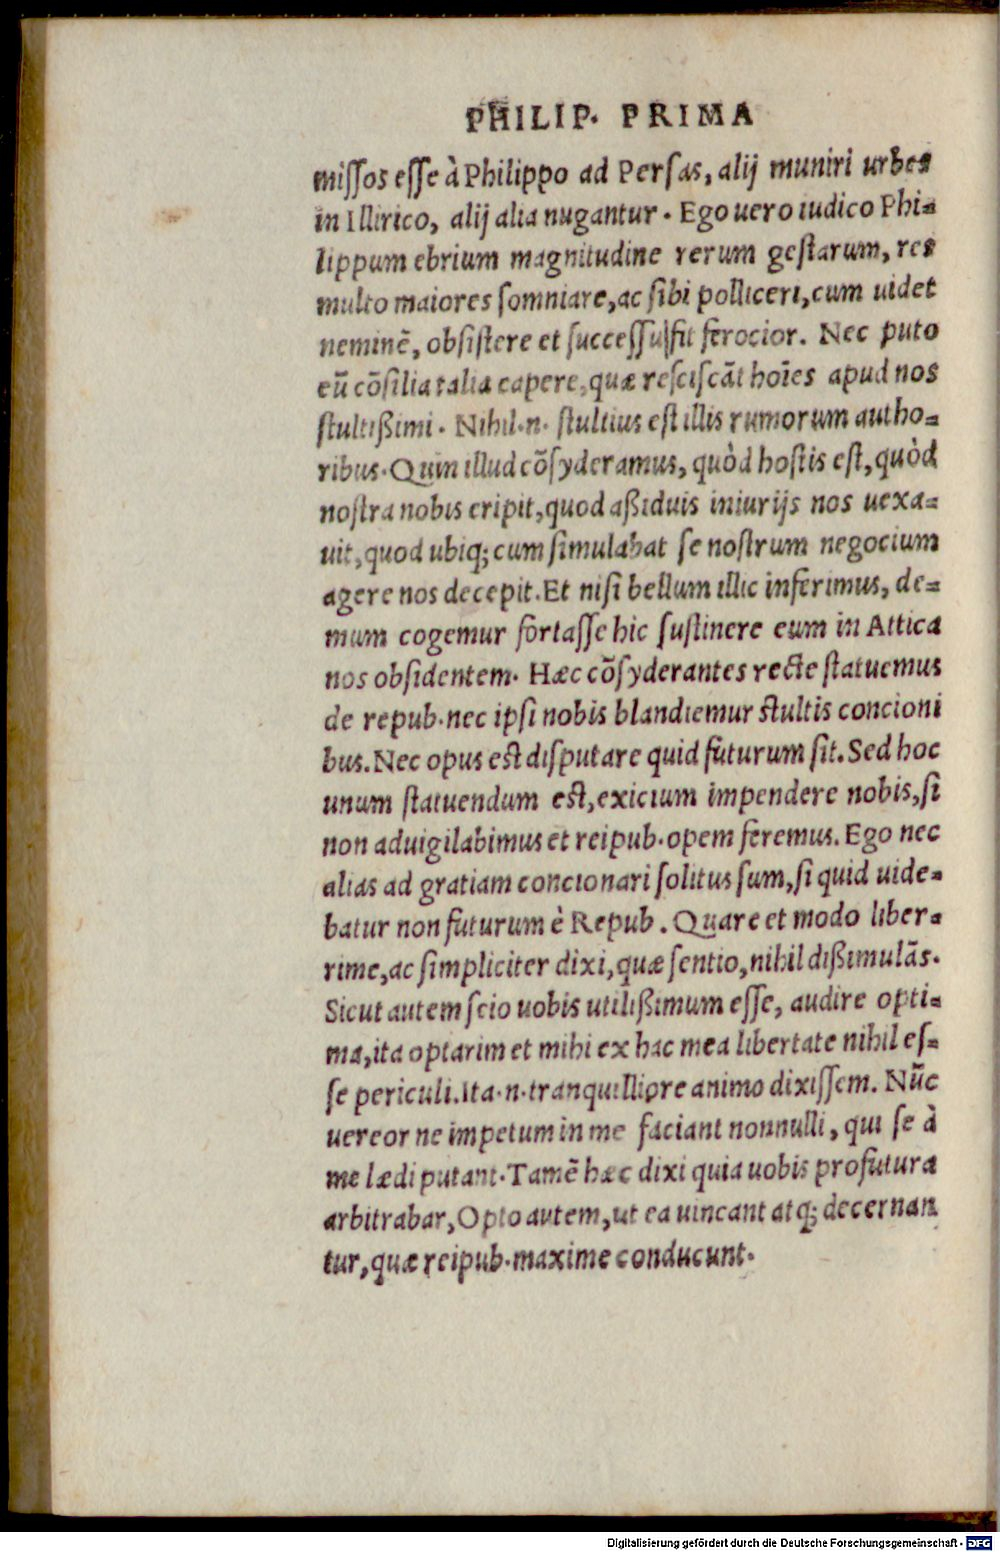 PHILIP. PRIMA
miſſos eſſe à Philippo ad Perſas, alij muniri urbes
in Illirico, alij alia nugantur. Ego uero iudico Phi-
lippum ebrium magnitudine rerum geſtarum, res
multo maiores ſomniare, ac ſibi polliceri, cum uidet
neminẽ, obſiſtere et ſucceſſu ſit ferocior. Nec puto
eũ cõſilia talia capere, quæ reſciſcãt hoĩes apud nos
ſtultißimi. Nihil.n. ſtultius eſt illis rumorum autho-
ribus. Quin illud cõſyderamus, quòd hoſtis eſt, quòd
noſtra nobis eripit, quod aßiduis iniurijs nos uexa-
uit, quod ubiq; cum ſimulabat ſe noſtrum negocium
agere nos decepit. Et niſi bellum illic inferimus, de-
mum cogemur fortaſſe hic ſuſtinere eum in Attica
nos obſidentem. Hæc cõſyderantes recte ſtatuemus
de repub. nec ipſi nobis blandiemur ſtultis concioni
bus. Nec opus eſt diſputare quid futurum ſit. Sed hoc
unum ſtatuendum eſt, exicium impendere nobis, ſi
non aduigilabimus et reipub. opem feremus. Ego nec
alias ad gratiam concionari ſolitus ſum, ſi quid uide-
batur non futurum è Repub. Quare et modo liber-
rime, ac ſimpliciter dixi, quæ ſentio, nihil dißimulãs.
Sicut autem ſcio uobis utilißimum eſſe, audire opti-
ma, ita optarim et mihi ex hac mea libertate nihil eſ-
ſe periculi. Ita.n. tranquilliore animo dixiſſem. Nũc
uereor ne impetum in me faciant nonnulli, qui ſe à
me lædi putant. Tamẽ hæc dixi quia uobis profutura
arbitrabar, Opto autem, ut ea uincant atq; decernan
tur, quæ reipub. maxime conducunt.
Digitalisierung gefördert durch die Deutsche Forschungsgemeinschaft - DFG